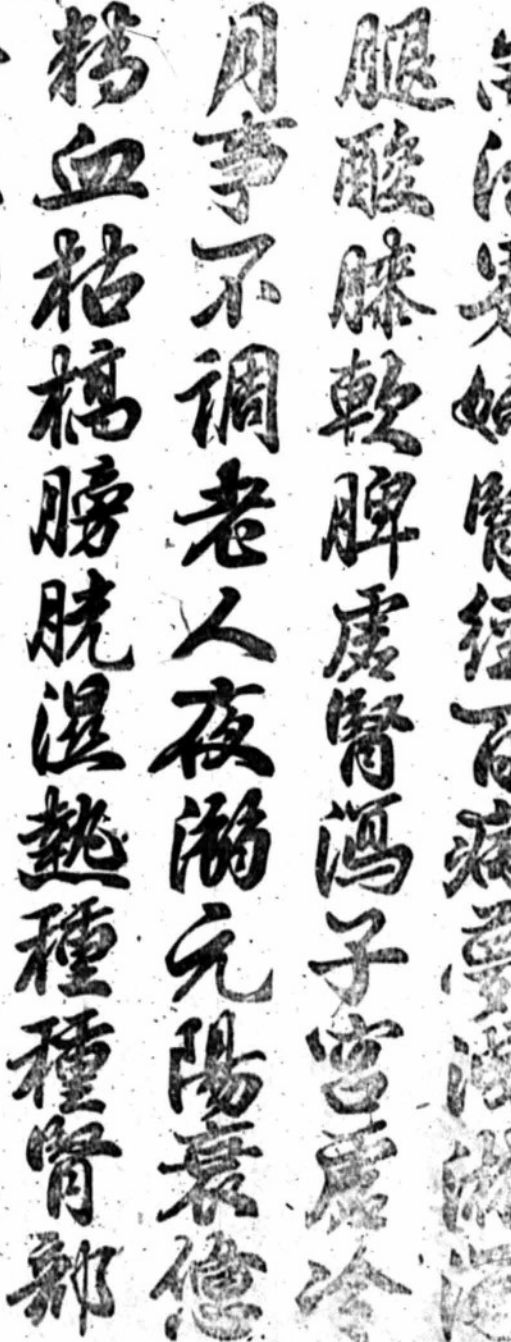 腎經百病夢
腿酸膝軟脾虛腎瀉子宮虛冷
月事不調老人夜溺元陽衰憊
精血枯槁膀胱濕熱種種腎部